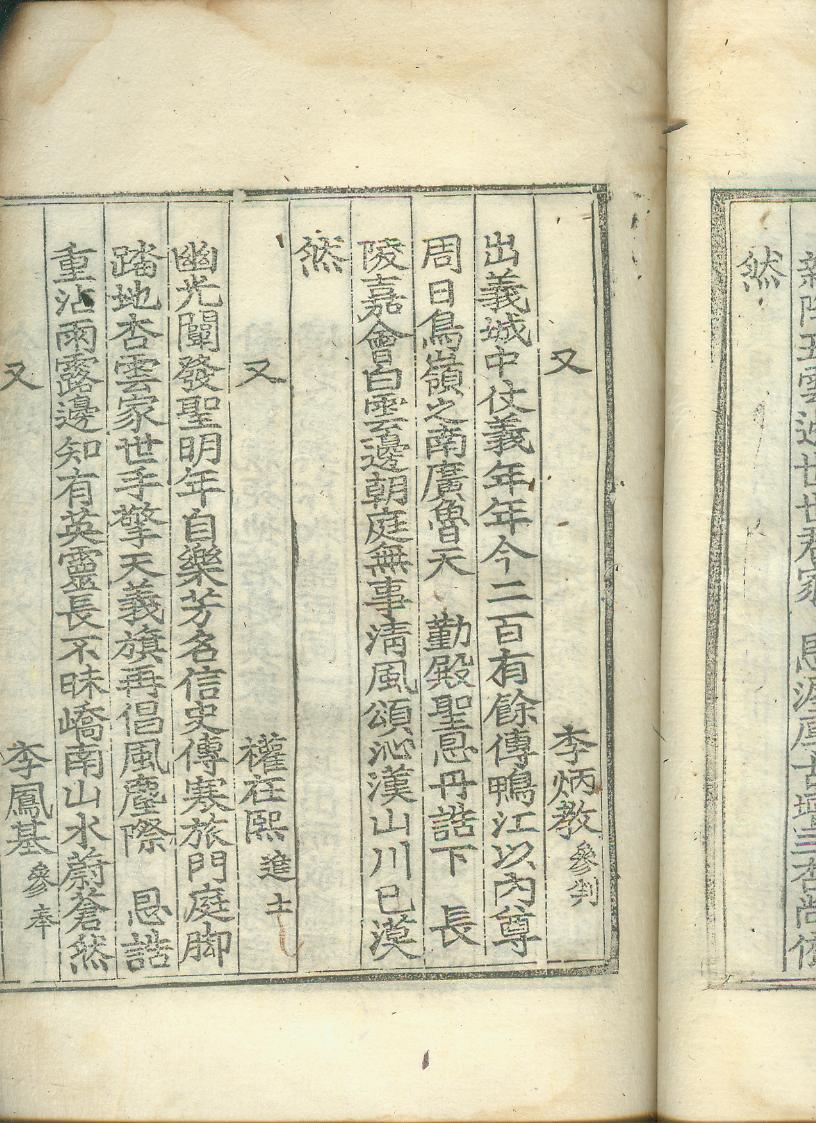 然
又 李炳教 參判
出義城中仗義年年今二百有餘傳鴨江以內尊
周日鳥嶺之南廣魯天 勤殿聖恩丹誥下 長
陵嘉會白雲邊朝庭無事淸風頌沁漢山川已漠
然
又 權在熙 進士
幽光闡發聖明年自樂芳名信史傳寒旅門庭脚
踏地杏雲家世手擎天義旗再倡風塵際 恩誥
重沾雨露邊知有英靈長不昧嶠南山水蔚蒼然
又 李鳳基 參奉